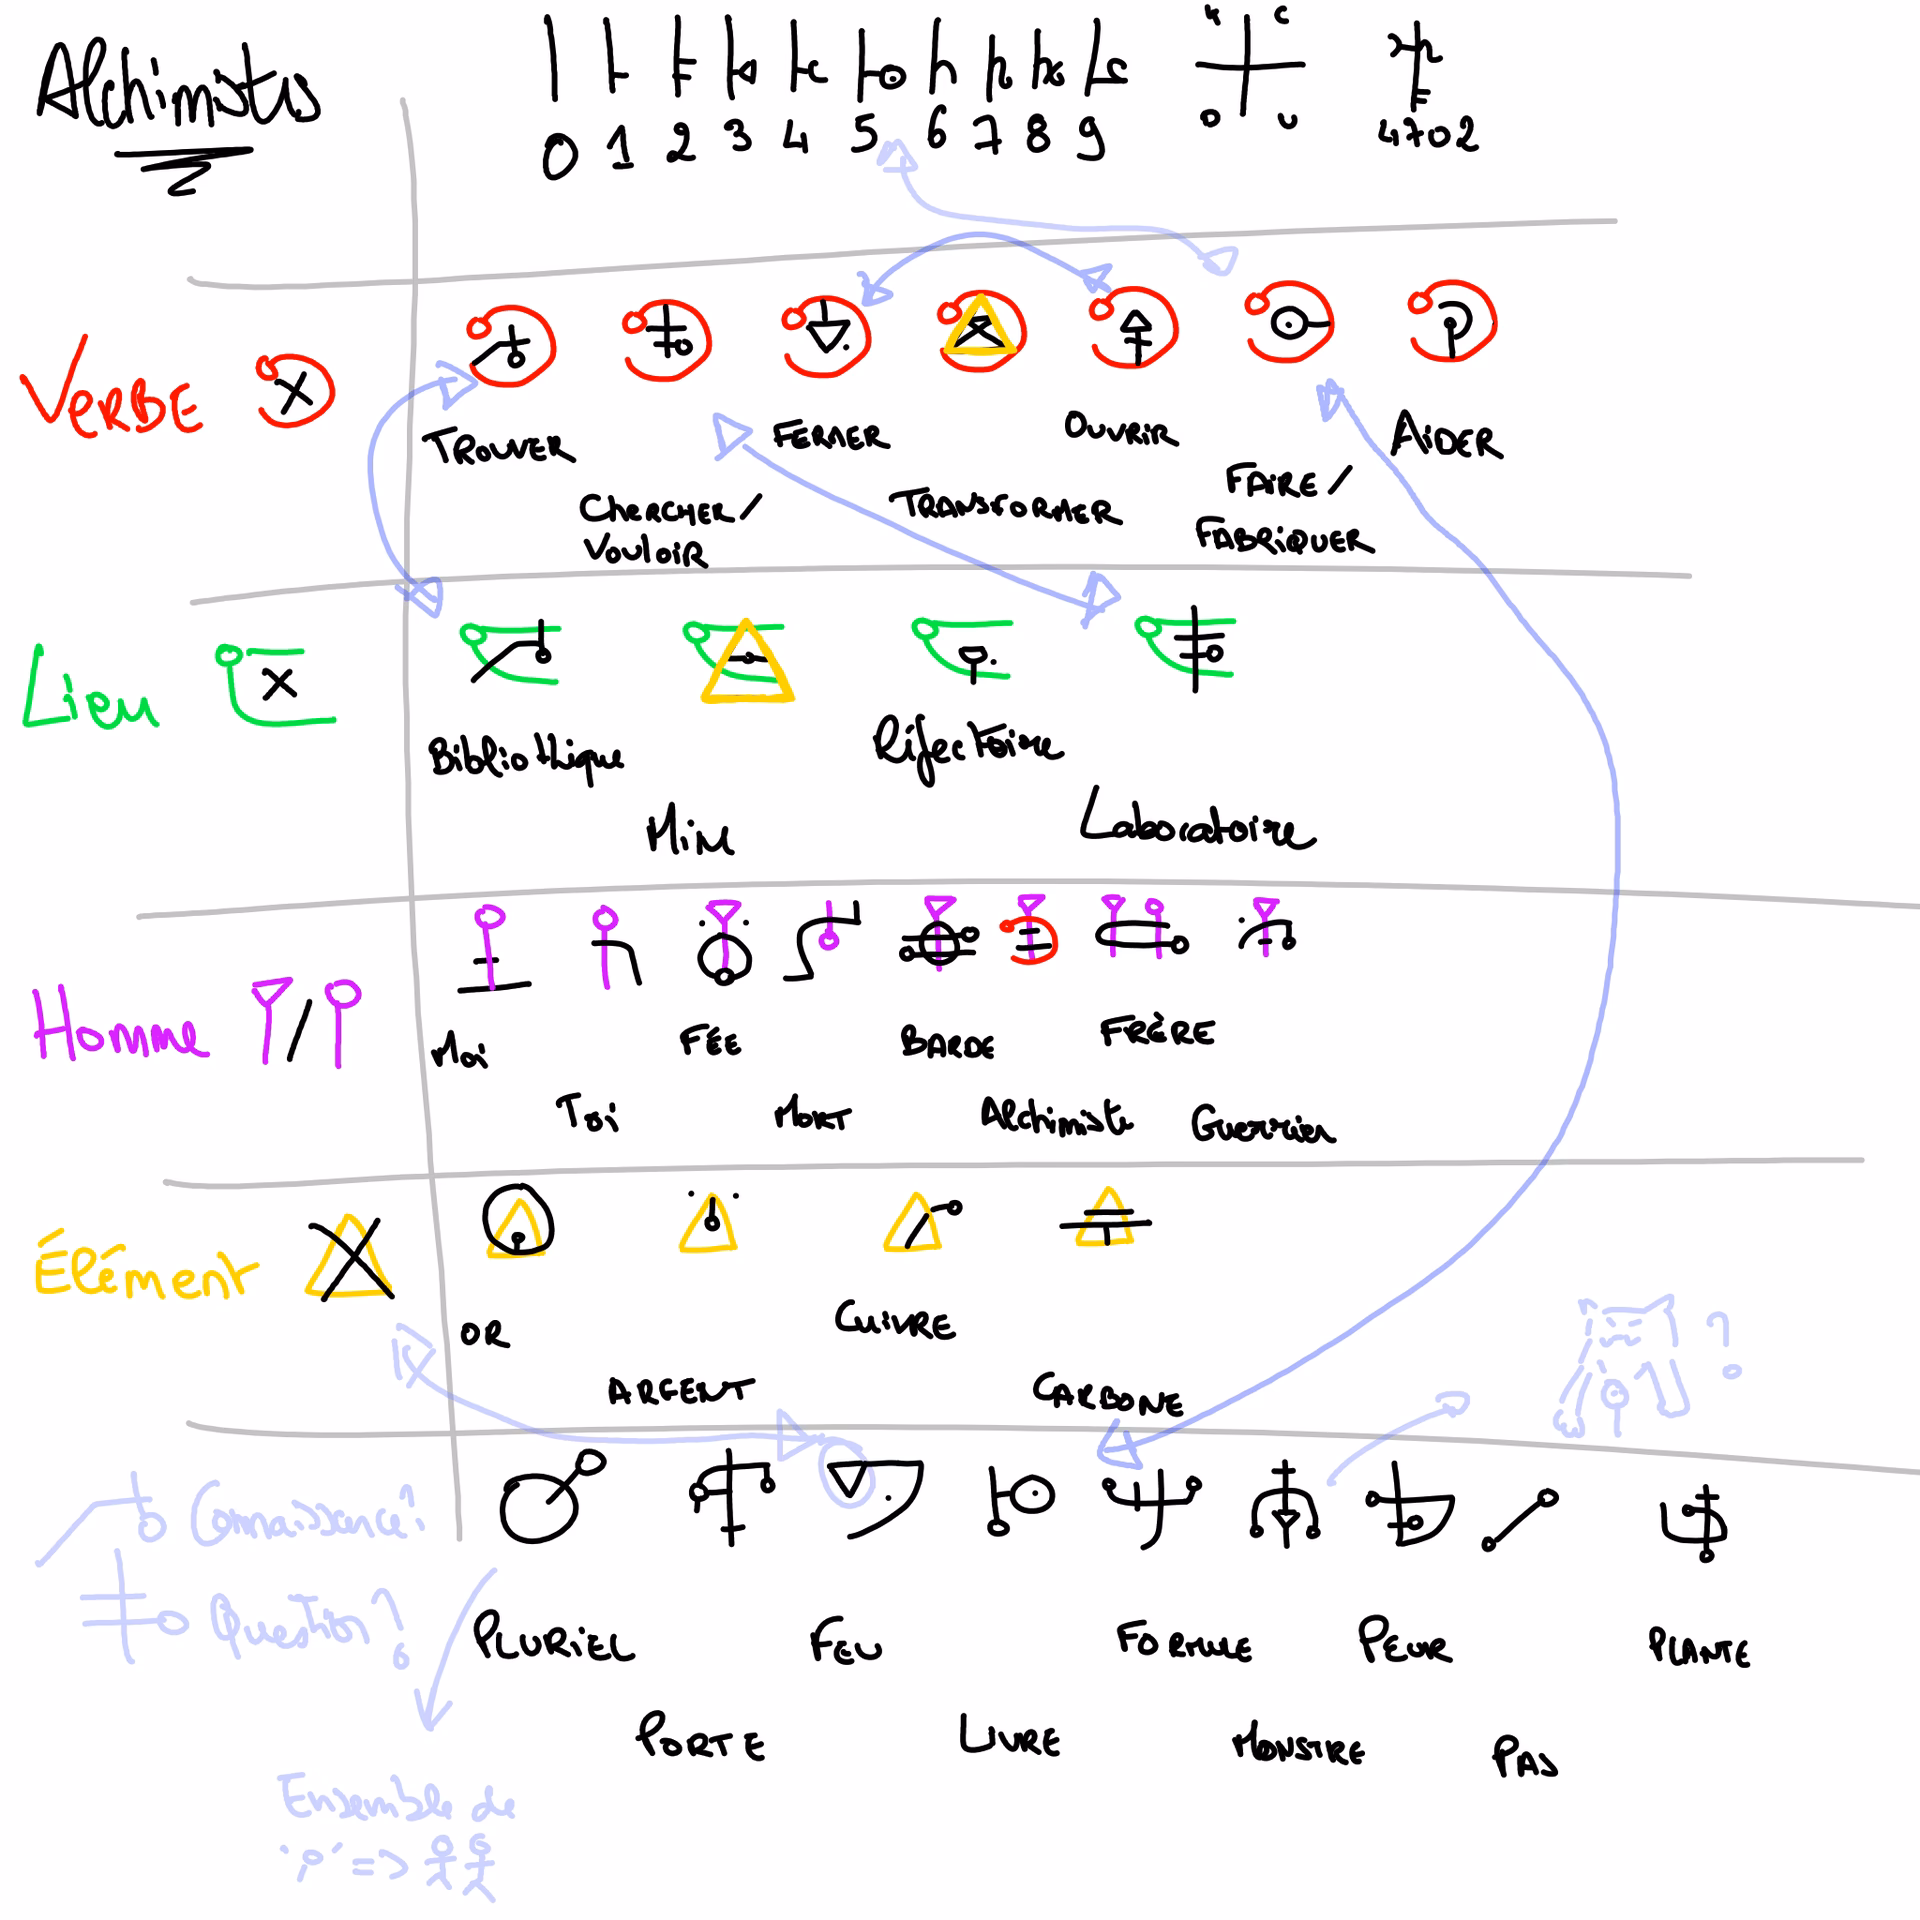 Alchimiste
4 C
0 1 2 3 4 5 6 7 8 9
D U
4702
VERBE
TROUVER
CHERCHER/
VOULOIR
FERMER
TRANSFORMER
OUVRIR
FAIRE/
FABRIQUER
AIDER
Lieu
Bibliothèque
Mine
Réfectoire
Laboratoire
Homme
Moi
Toi
FÉE
MORT
BARDE
Alchimiste
FRÈRE
Guerrier
Élément
OR
ARGENT
CUIVRE
CARBONE
Connaissance?
Question?
PLURIEL
PORTE
FEU
LIVRE
FORMULE
MONSTRE
PEUR
PAS
PLANTE
?
Ensemble de
=>